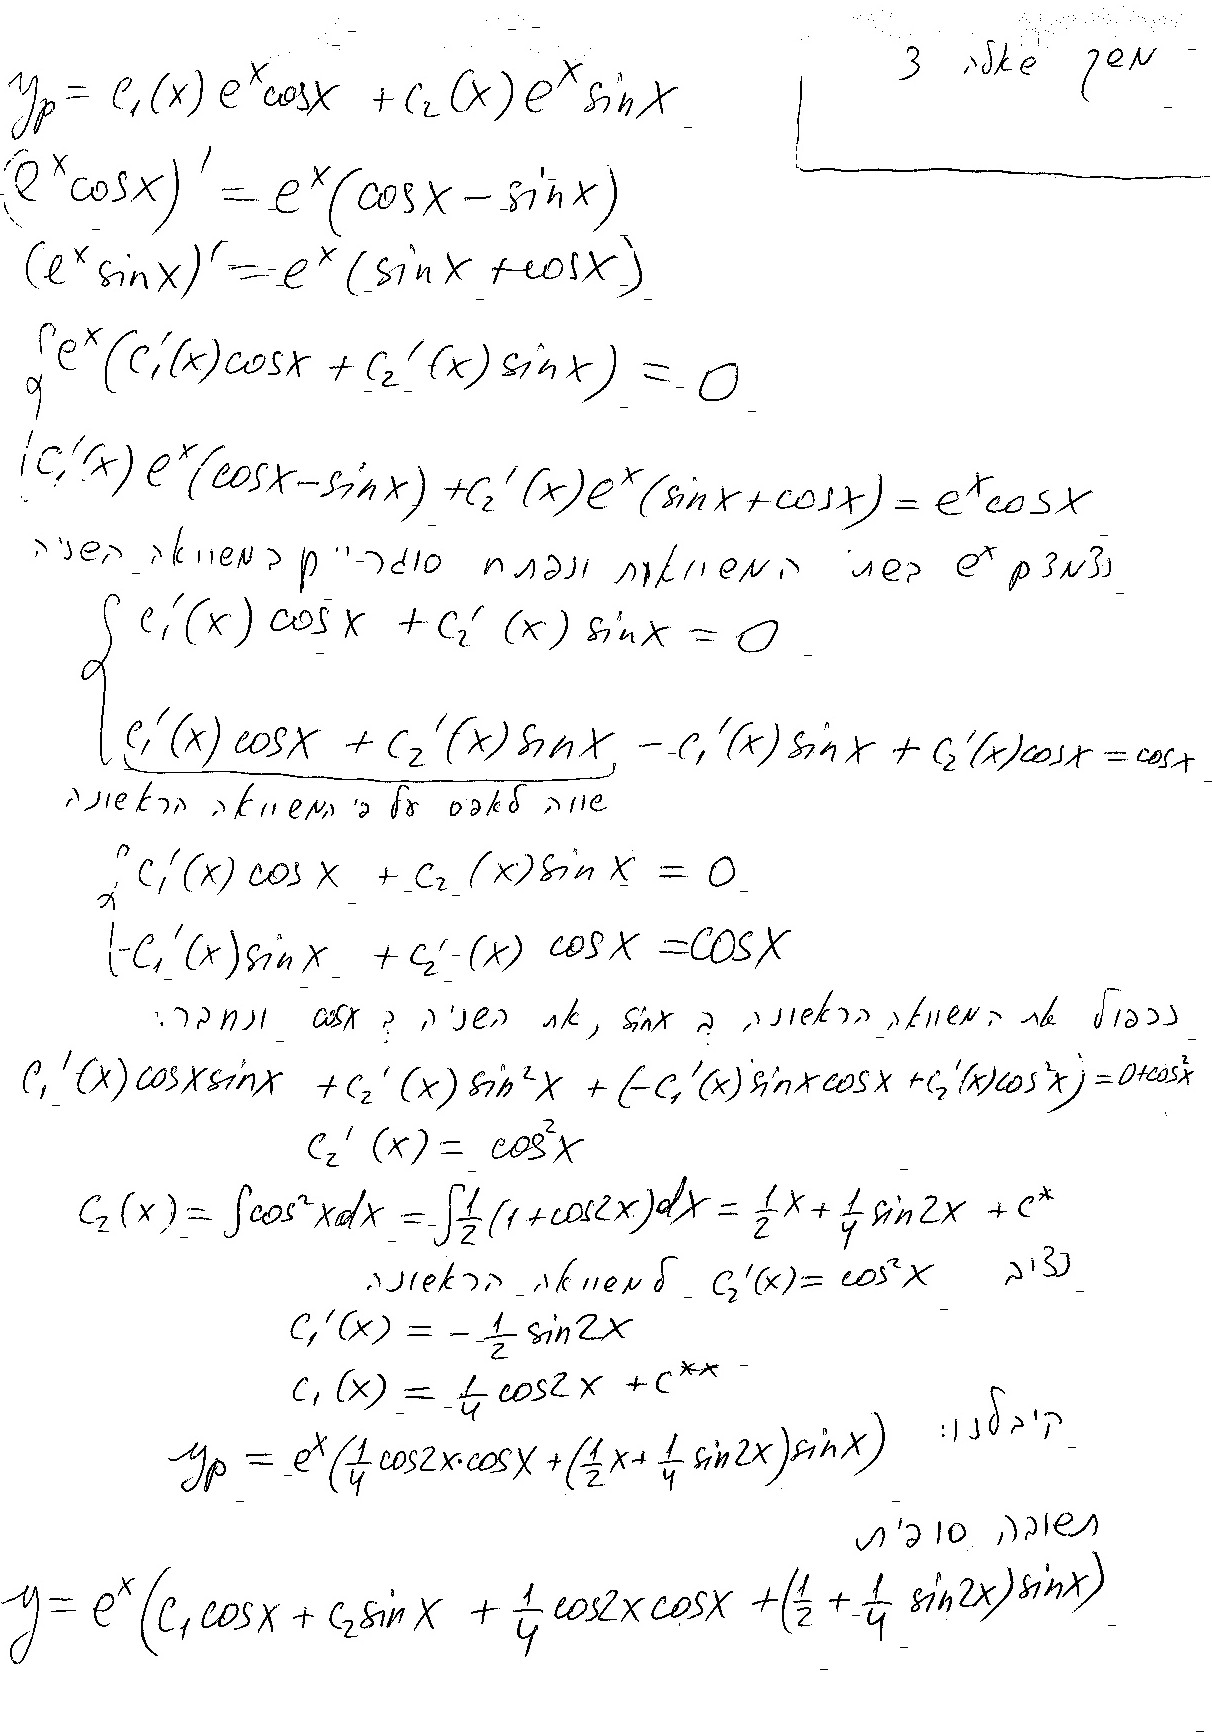 המשך שאלה 3
y_p = c₁(x)eˣcosx + c₂(x)eˣsinx
(eˣcosx)' = eˣ(cosx - sinx)
(eˣsinx)' = eˣ(sinx + cosx)
{ eˣ(c₁'(x)cosx + c₂'(x)sinx) = 0
c₁'(x)eˣ(cosx - sinx) + c₂'(x)eˣ(sinx + cosx) = eˣcosx
נצמצם eˣ בשתי המשוואות ונפתח סוגריים במשוואה השניה
{ c₁'(x)cosx + c₂'(x)sinx = 0
c₁'(x)cosx + c₂'(x)sinx - c₁'(x)sinx + c₂'(x)cosx = cosx
שווה לאפס על פי המשוואה הראשונה
{ c₁'(x)cosx + c₂(x)sinx = 0
-c₁'(x)sinx + c₂'(x)cosx = cosx
נכפול את המשוואה הראשונה ב sinx, את השניה ב cosx ונחבר:
c₁'(x)cosxsinx + c₂'(x)sin²x + (-c₁'(x)sinxcosx + c₂'(x)cos²x) = 0+cos²x
c₂'(x) = cos²x
c₂(x) = ∫cos²xdx = ∫½(1+cos2x)dx = ½x + ¼sin2x + c*
נציב c₂'(x) = cos²x למשוואה הראשונה
c₁'(x) = -½sin2x
c₁(x) = ¼cos2x + c**
קיבלנו:
y_p = eˣ(¼cos2x·cosx + (½x + ¼sin2x)sinx)
תשובה סופית
y = eˣ(c₁cosx + c₂sinx + ¼cos2xcosx + (½ + ¼sin2x)sinx)